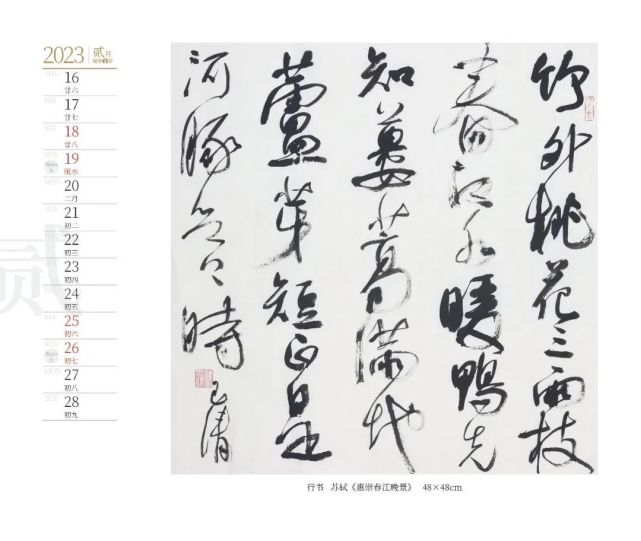 2023 贰月
16
廿六
17
廿七
18
廿八
19
雨水
20
二月
21
初二
22
初三
23
初四
24
初五
25
初六
26
初七
27
初八
28
初九
贰
竹外桃花三兩枝
春江水暖鴨先
知蔞蒿滿地
蘆芽短正是
河豚欲上時
行书 苏轼《惠崇春江晚景》 48×48cm